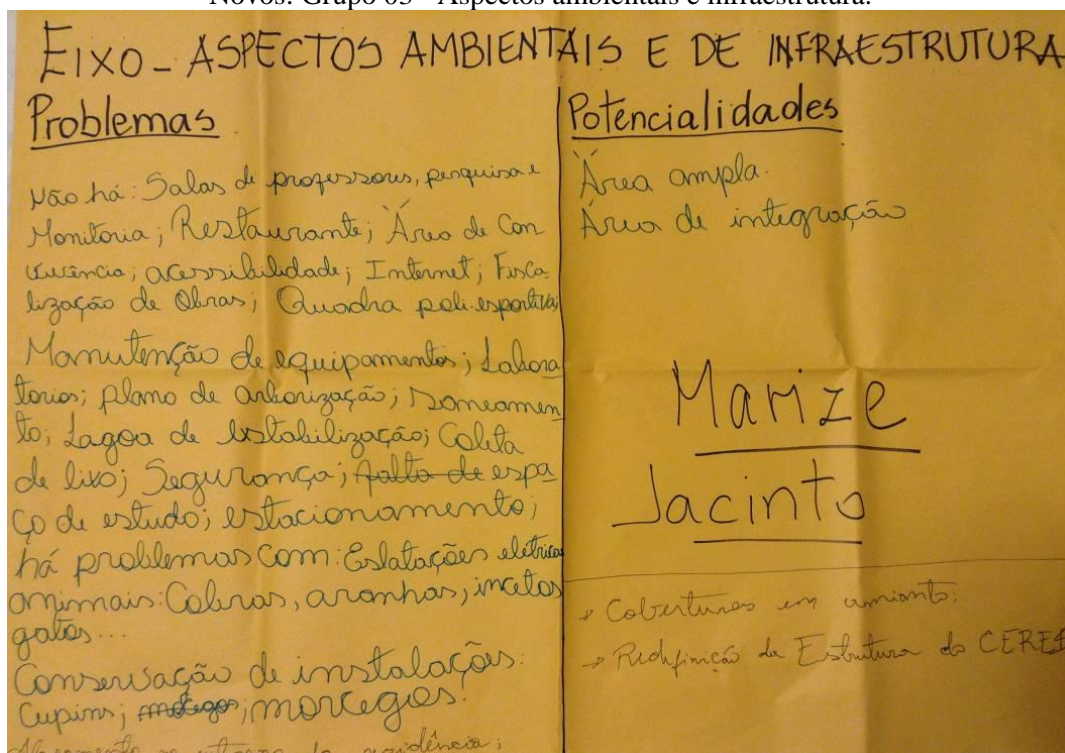 Novos: Grupo 03 - Aspectos ambientais e infraestrutura.
EIXO - ASPECTOS AMBIENTAIS E DE INFRAESTRUTURA
Problemas
Não há: Salas de professores, pesquisa e
Monitoria; Restaurante; Área de Con
vivência; acessibilidade; Internet; Fisca-
lização de Obras; Quadra poli-esportiva;
Manutenção de equipamentos; Labora
tórios; plano de arborização; Saneamen
to; Lagoa de Estabilização; Coleta
de lixo; Segurança; falta de espa
ço de estudo; estacionamento;
há problemas com: Eslatações elétricas
animais: Cobras, aranhas, incetos
gatos...
Conservação de instalações:
Cupins; morcegos!
Potencialidades
Área ampla.
Área de integração
Marize
Jacinto
→ Coberturas em amianto;
→ Redefinição da Estrutura do CERES